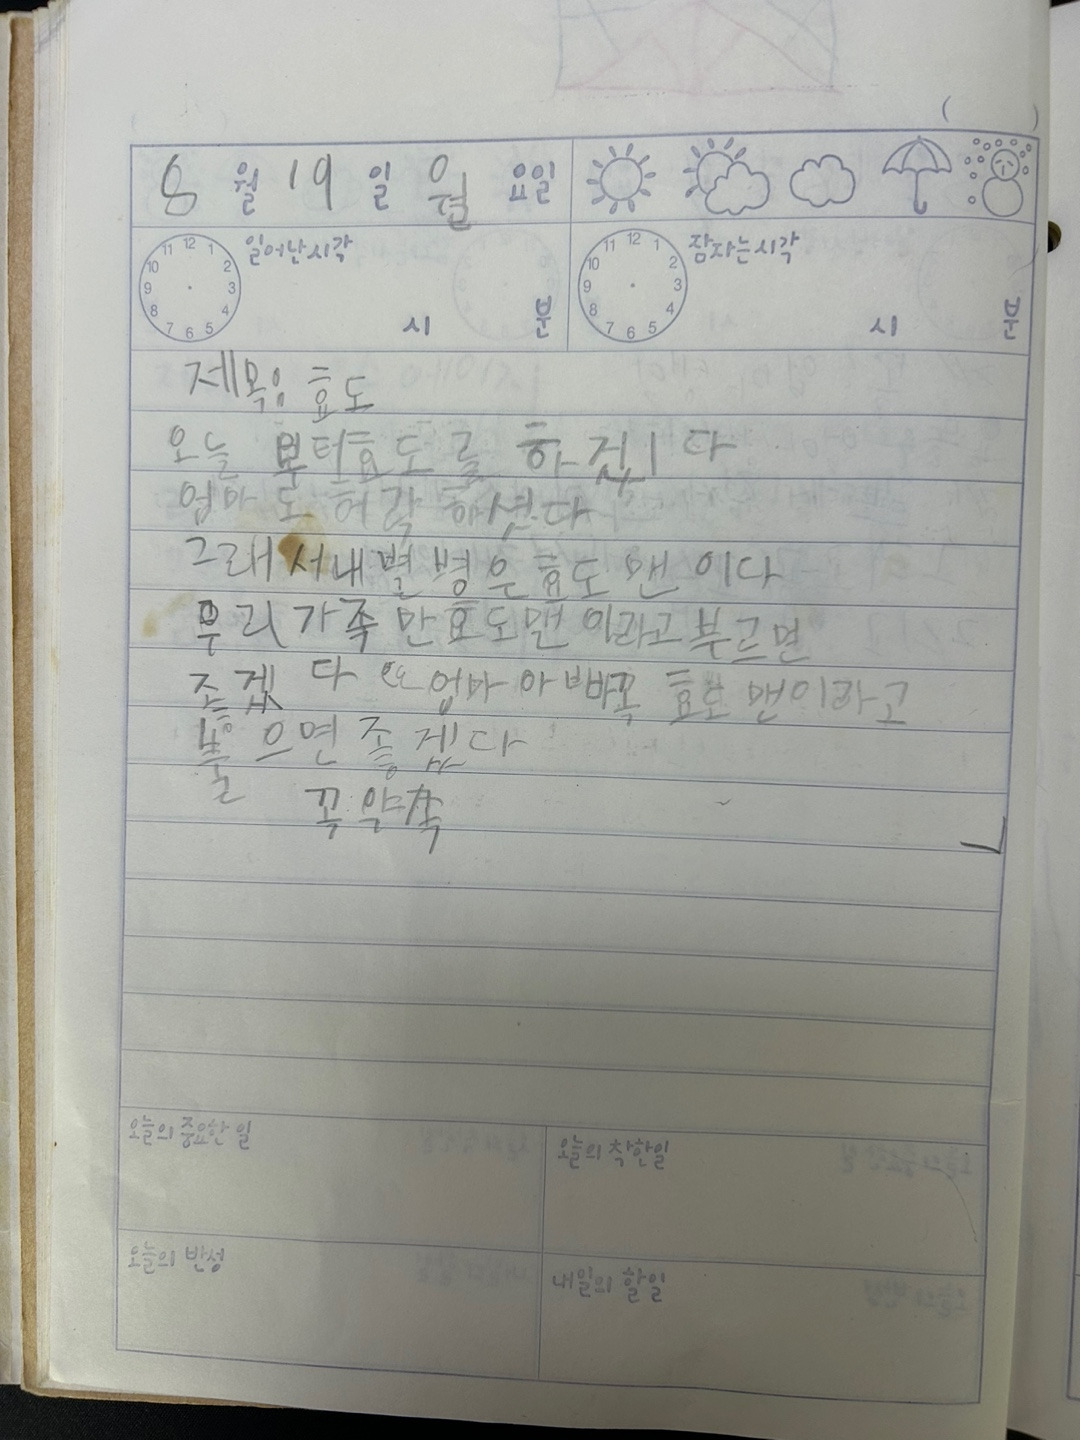 8월 19일 월요일
일어난시각 시 분 잠자는시각 시 분
12 1 2 3 4 5 6 7 8 9 10 11
12 1 2 3 4 5 6 7 8 9 10 11
제목: 효도
오늘 부터효도를 하겠이다
엄마도 허락 하셧다
그래서내별병은효도 맨 이다
우리가족 만효도맨이라고부르면
조겠다 또 엄마아빠꼭 효도맨이라고
불으면 좋겠다
꼭약속
오늘의 중요한 일 오늘의 착한일
오늘의 반성 내일의 할일